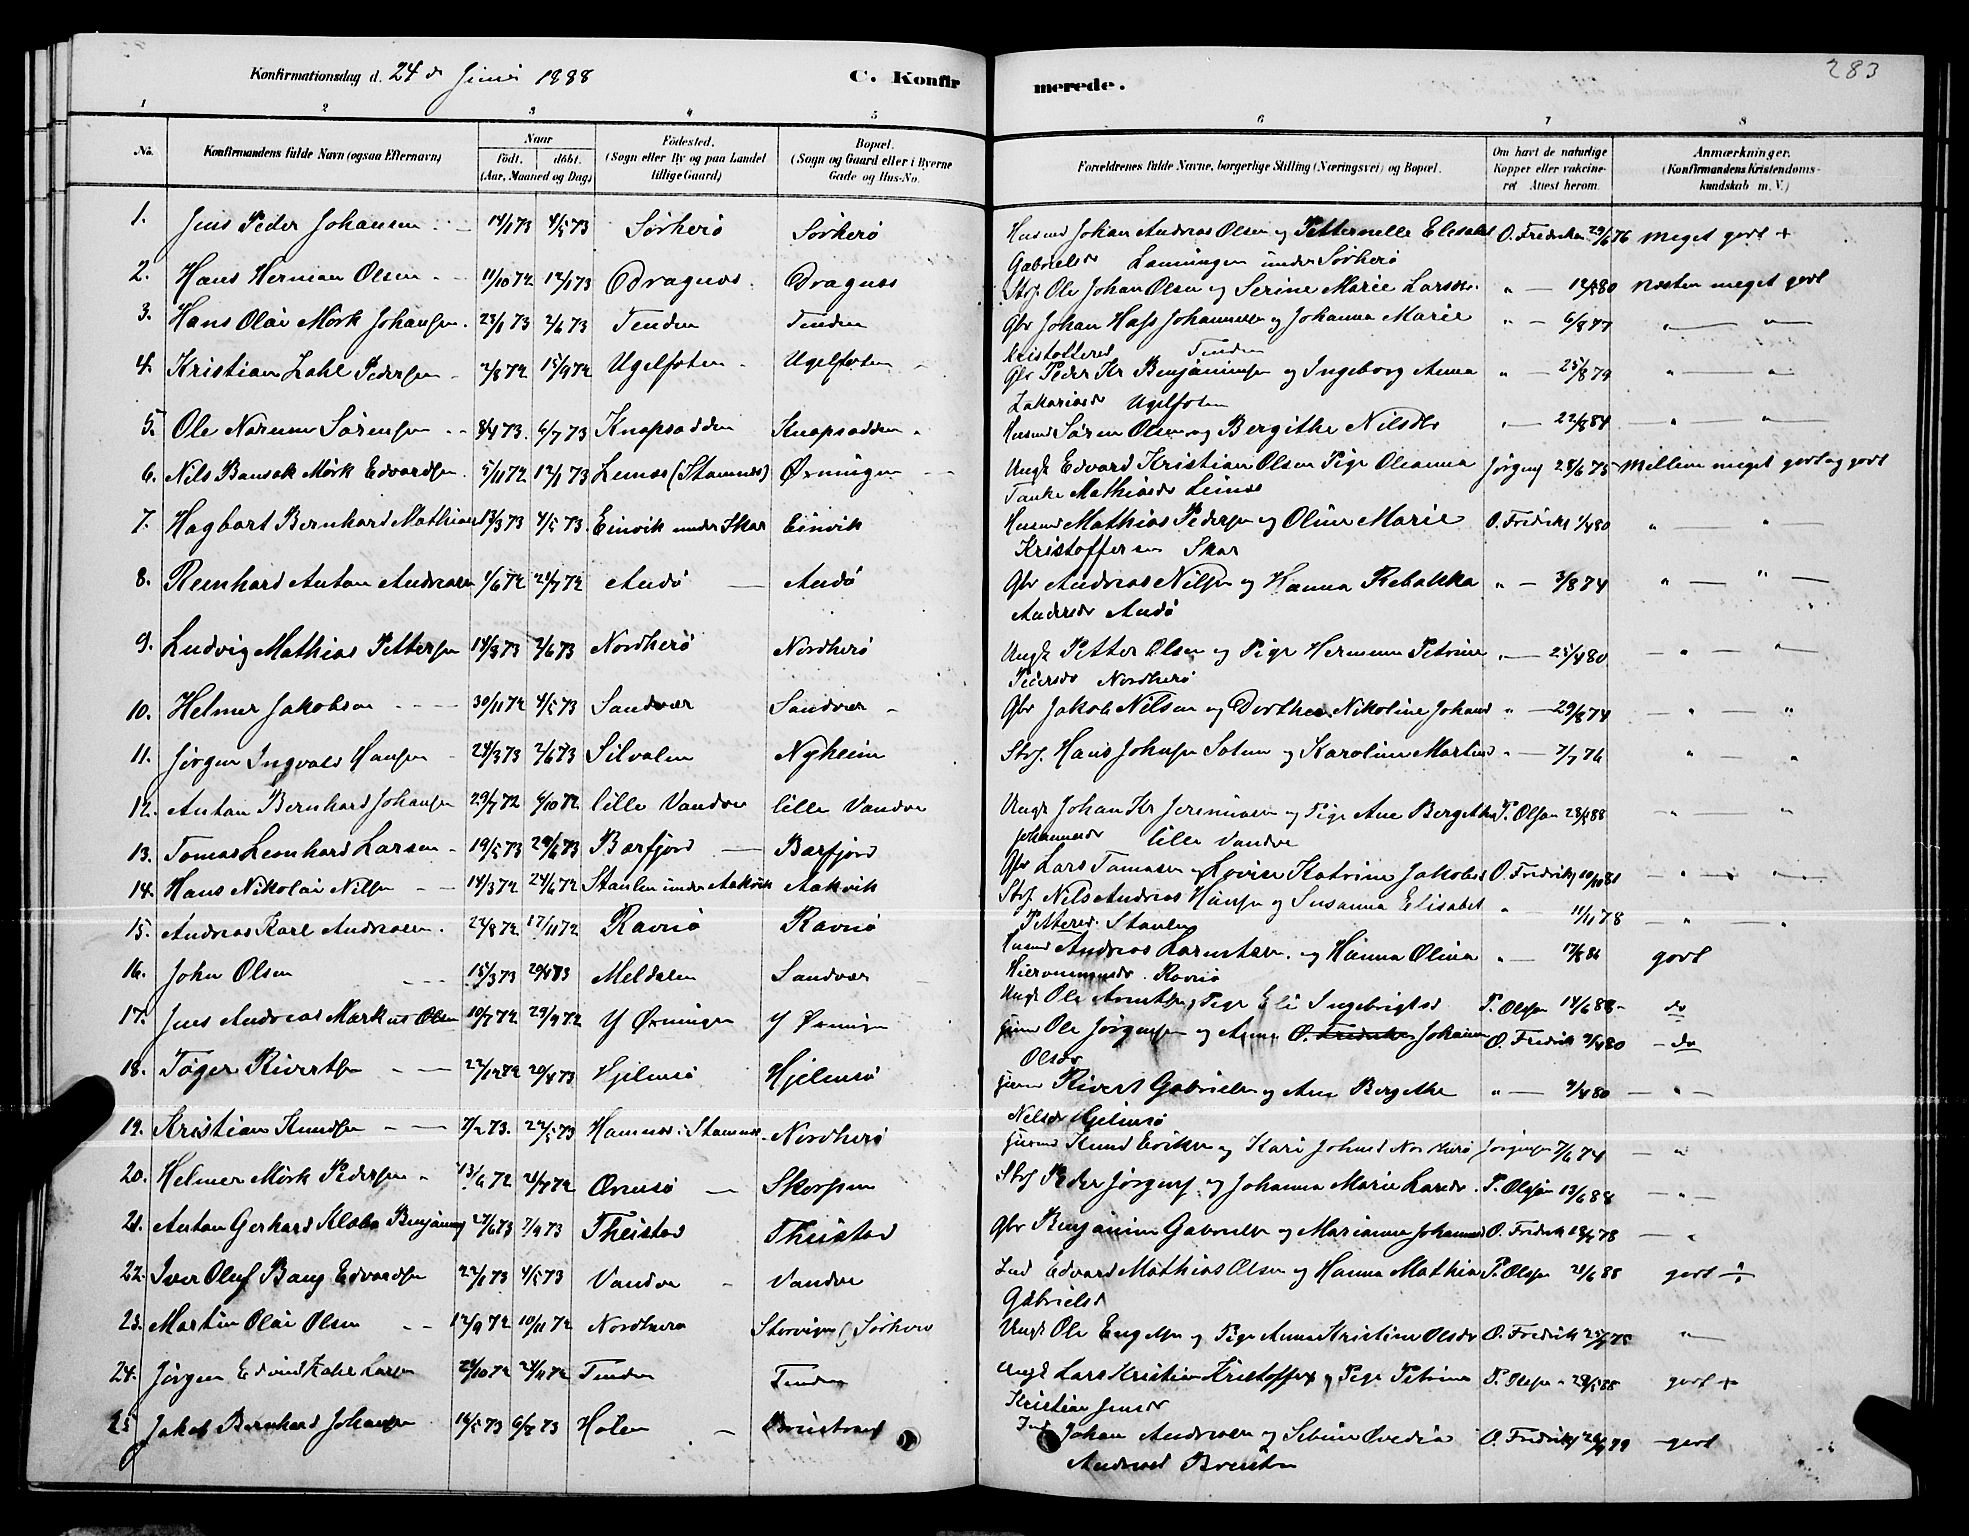 283
Konfirmationsdag d. 24de Juni 1888
C. Konfirmerede.
1 2 3 4 5 6 7 8
No. Konfirmandens fulde Navn (ogsaa Efternavn) Naar födt. döbt. (Aar, Maaned og Dag) Födested. (Sogn eller By og paa Landet tillige Gaard) Bopæl. (Sogn og Gaard eller i Byerne Gade og Hus-No. Forældrenes fulde Navne, borgerlige Stilling (Næringsvei) og Bopæl. Om havt de naturlige Kopper eller vakcineret Attest herom. Anmærkninger. (Konfirmandens Kristendomskundskab m. V.)
1. Jens Peder Johansen 14/1 73 4/5 73 Sørherø Sørherø Husmd Johan Andreas Olsen og Petternelle Elisabet O. Fredriksen 29/6 76 Meget godt +
Gabrielsdr under Sørherø
2. Hans Herman Olsen 11/10 72 12/1 73 Dragnæs Dragnæs Strf. Ole Johan Olsen og Serine Marie Larsdr. " 80 Næsten meget godt
3. Hans Olai Mörk Johansen 23/1 73 2/6 73 Tenden Tenden Gbr Johan Hass Johannesen og Johanna Marie " 6/8 77 " "
Kristoffersd Tenden
4. Kristian Zahl Pedersen 2/8 72 15/9 72 Ugelfoten Ugelfoten Gbr Peder Kr Benjaminsen og Ingeborg Anna " 25/8 79 " "
Zakariasdr Ugelfoten
5. Ole Norum Sörensen 8/4 73. 6/7 73 Knapsadden Knapsadden Husmd Sören Olsen og Bergithe Nilsdr " 22/8 84 " "
6. Nils Bansak Mörk Edvardsen 5/11 72 12/1 73 Leinæs (Stamnes) Øxningen Ungk Edvard Kristian Olsen Pige Oleanna Jørgens 28/6 75 Mellem meget godt og godt
Tanke Mathiasdr Leinæs
7. Hagbart Bernhard Mathias 13/3 73 4/5 73 Einvik under Skar Einvik Husmd Mathias Pedersen og Oline Marie O. Fredriks 80 " "
Kristoffersen Skar
8. Reinhard Anton Andreasen 1/6 72 21/7 72 Andö Andö Gbr Andreas Nilsen og Hanna Rebakka " 3/8 74 " "
Andersdr Andö
9. Ludvig Mathias Pettersen 14/3 73 2/6 73 Nordherö Nordherö Ungk Petter Olsen og Pige Petrine " 25/4 80 " "
Pedersdr Nordherö
10. Helmer Jakobsen 30/11 72 4/5 73 Sandvær Sandvær Gbr Jakob Nilsen og Dorthea Nikoline Johansd " 29/8 74 " "
11. Jörgen Ingvald Hansen 24/3 73 2/6 73 Silvalen Nyheim Strf. Hans Johnsen og Karoline Martinsd " 7/7 76 " "
12. Anton Bernhard Johansen 29/7 72 6/10 72 lille Vandve lille Vandve Ungk Johan Kr Jeremiasen og Pige Ane Bergithe P. Olsen 88 " "
Johannesdr lille Vandve
13. Tomas Leonhard Larsen 19/5 73 29/6 73 Barfjord Barfjord Gbr Lars Tomasen og Lovise Katrine Jakobsd O. Fredriks 10/10 81 " "
14. Hans Nikolai Nilsen 14/3 72 24/6 72 Staulen under Aakvik Aakvik Strf. Nils Andreas Hansen og Susanna Elisabet " 11/11 78 " "
Pettersd. Staulen
15. Andreas Karl Andreasen 72 17/11 72 Ravnö Ravnö Husmd Andreas og Hanna Olina " 81 godt
Hieronimusdr. Ravnö
16. John Olsen 15/3 73 73 Meldalen Sandvær Ungk Ole Arntsen Pige Eli Ingebrigtsd P. Olsen 14/6 88 do
17. Jens Andreas Markus Olsen 10/7 72 29/9 72 Y Øxningen Y Øxningen Ole Jörgensen og Anna O. Fredriksen Johanna O. Fredrik 80 do
Olsdr
18. Töger Rivertsen 22/12 72 20/4 73 Hjelmsö Hjelmsö Rivert Gabrielsen og Ane Bergethe " 80 "
Nilsdr Hjelmsö
19. Kristian Knudsen 73. 22/5 73 Stamnæs Nordherö Knud Eriksen og Kari Johnsd Nordherö Jörgensen 7/6 74 "
20. Helmer Mörk Pedersen 13/6 72 21/7 72 Skorpen Strf Peder Jörgens og Johanna Marie Larsdr. P. Olsen 13/6 88 "
21. Anton Gerhard Klæbo Benjamins 73 7/9 73 Theistad Theistad Gbr Benjamin Gabrielsen og Marianna Johannesd O. Fredrik 78 "
22. Iver Oluf Bang Edvardsen 22/1 73 4/5 73 Vandve Vandve Ind Edvard Mathias Olsen og Hanna Mathia P. Olsen 21/6 88 godt ÷
Gabrielsd
23. Martin Olai Olsen 12/9 72 10/11 72 Nordherø Sørherø Ungk Ole Engelsen og Pige Anna Kristine Olsdr O. Fredrik 75 "
24. Jørgen Edvind Zahl Larsen 72 72 Tenden Tenden Ungk Lars Kristian Kristoffersen og Pige Petrine P. Olsen 88 godt +
Kristian Jensdr
25 Jakob Bernhard Johansen 16/5 73 6/8 73 Holen Breistrand Ind Johan Andreasen og Sibine Ovedia O. Fredriks 79 godt
Andreasd